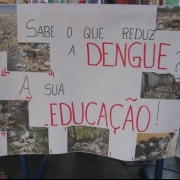 SABE O QUE REDUZ
A DENGUE?
A SUA
EDUCAÇÃO!